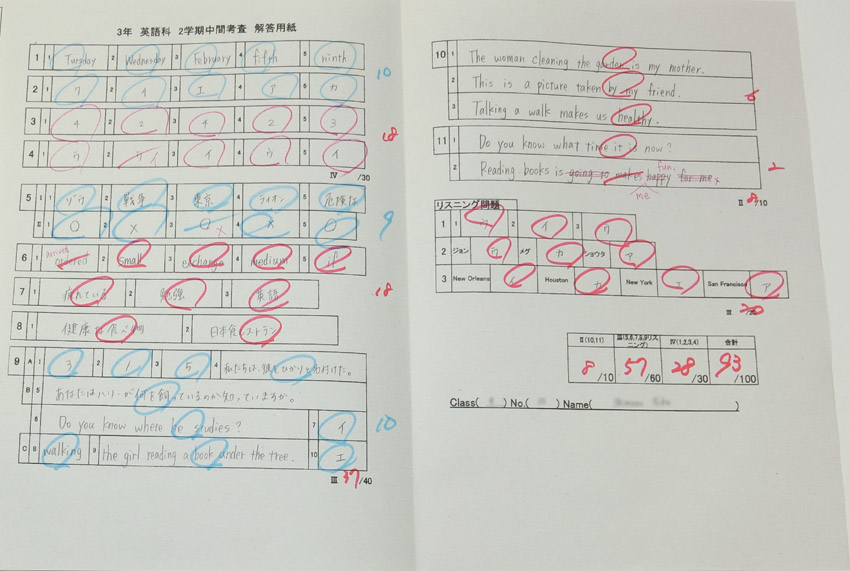 3年 英語科 2学期中間考査 解答用紙
1 1 Tuesday 2 Wednesday 3 February 4 fifth 5 ninth 10
2 1 ウ 2 イ 3 エ 4 ア 5 カ
3 1 4 2 2 3 4 4 2 5 3 18
4 1 ウ 2 イ 3 イ 4 ウ 5 イ
Ⅳ /30
5 Ⅰ 1 ゾウ 2 戦争 3 東京 4 ライオン 5 危険な 9
Ⅱ 1 O 2 × 3 O × 4 × 5 O
6 1 ordered arrived 2 small 3 exchange 4 medium 5 if
7 1 疲れている 2 勉強 3 英語 18
8 1 健康な食べ物 2 日本食レストラン
9 A 1 3 2 1 3 5 4 私たちは、彼をひかりと名付けた。
B 5 あなたはハリーが何を飼っているのか知っていますか。
6 Do you know where he studies? 7 イ 10
C 8 walking 9 the girl reading a book under the tree. 10 エ
Ⅲ 37/40
10 1 The woman cleaning the garden is my mother.
2 This is a picture taken by my friend. 6
3 Talking a walk makes us healthy.
11 1 Do you know what time it is now?
2 Reading books is going to makes happy for me. fun me 2
Ⅱ 8/10
リスニング問題
1 1 ウ 2 イ 3 ウ
2 ジョン ウ メグ カ ショウタ ア
3 New Orleans イ Houston カ New York エ San Francisco ア
Ⅲ 20/20
Ⅱ(10,11) Ⅲ(5,6,7,8,9リスニング) Ⅳ(1,2,3,4) 合計
8/10 57/60 28/30 93/100
Class( ) No.( ) Name( )